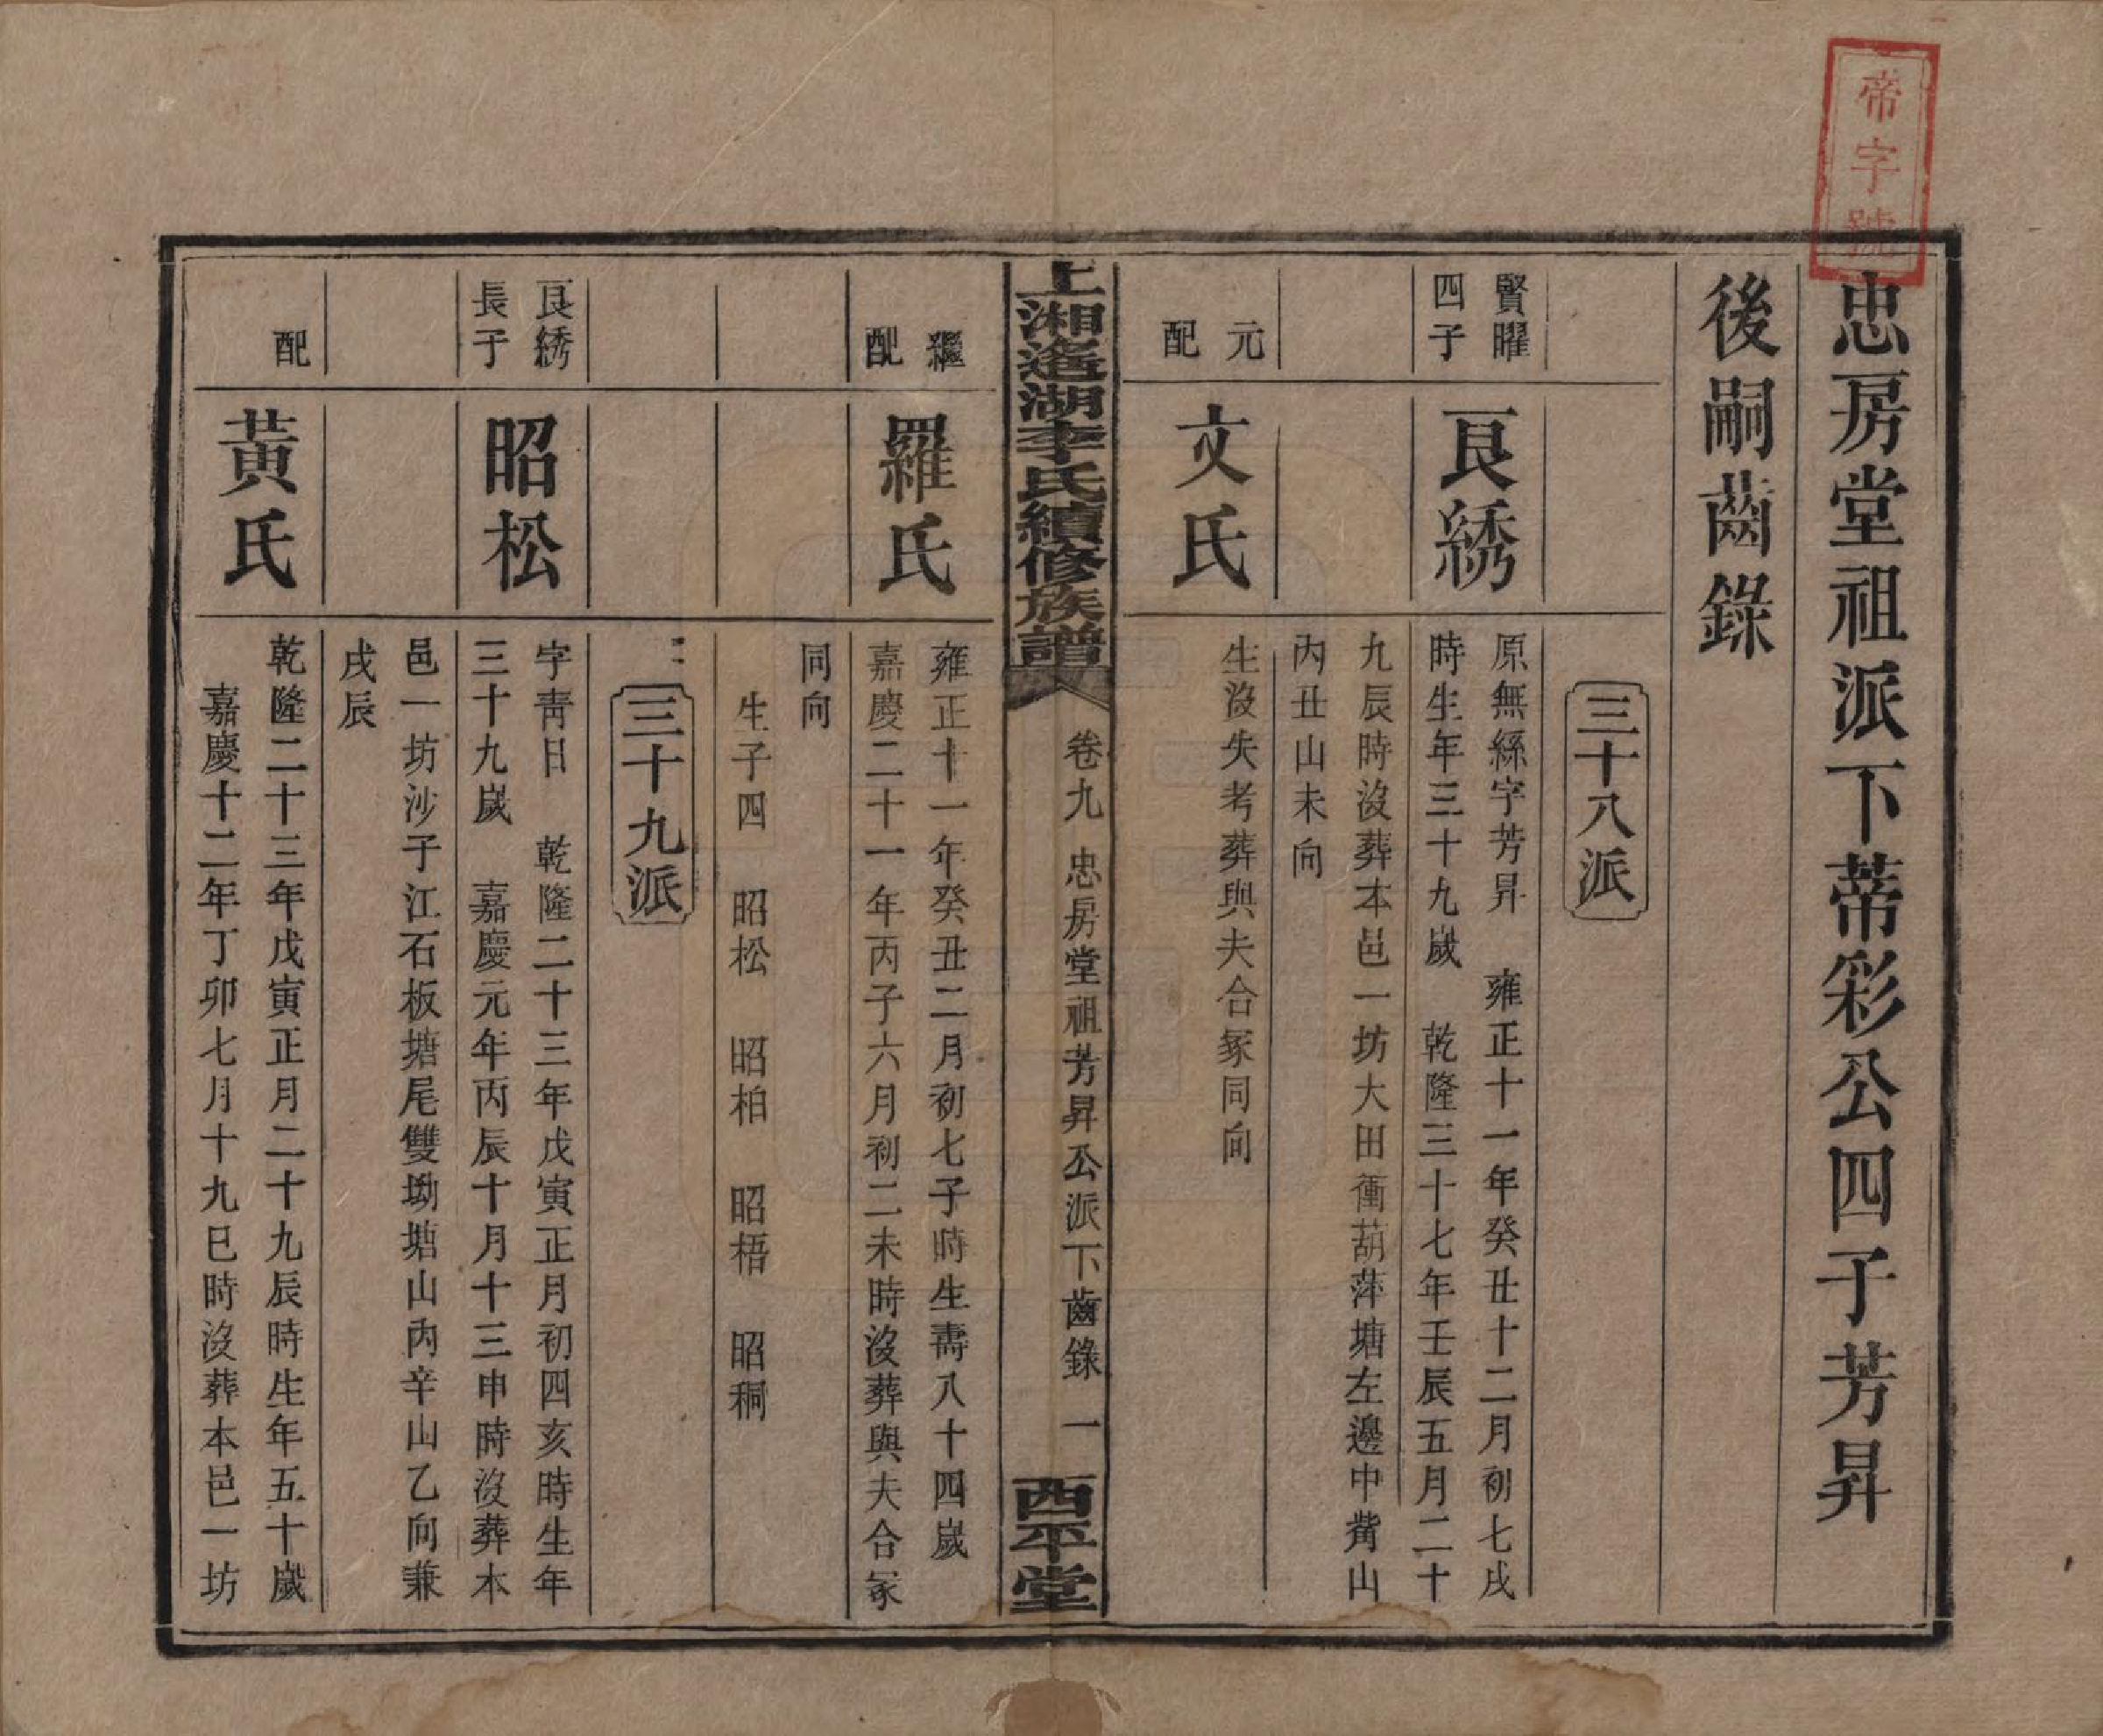 帝字號
忠房堂祖派下蒂彩公四子芳昇
後嗣齒錄
三十八派
賢曜四子
良綉
原無緜字芳昇　雍正十一年癸丑十二月初七戌
時生年三十九歲　乾隆三十七年壬辰五月二十
九辰時沒葬本邑一坊大田衝葫萍塘左邊中觜山
內丑山未向
元配
文氏
生沒失考葬與夫合冢同向
上湘遙湖李氏續修族譜
卷九　忠房堂祖芳昇公派下齒錄　一
西平堂
繼配
羅氏
雍正十一年癸丑二月初七子時生壽八十四歲
嘉慶二十一年丙子六月初二未時沒葬與夫合冢
同向
生子四　昭松　昭柏　昭梧　昭秱
三十九派
良綉長子
昭松
字靑日　乾隆二十三年戊寅正月初四亥時生年
三十九歲　嘉慶元年丙辰十月十三申時沒葬本
邑一坊沙子江石板塘尾雙坳塘山內辛山乙向兼
戌辰
配
黃氏
乾隆二十三年戊寅正月二十九辰時生年五十歲
嘉慶十二年丁卯七月十九巳時沒葬本邑一坊